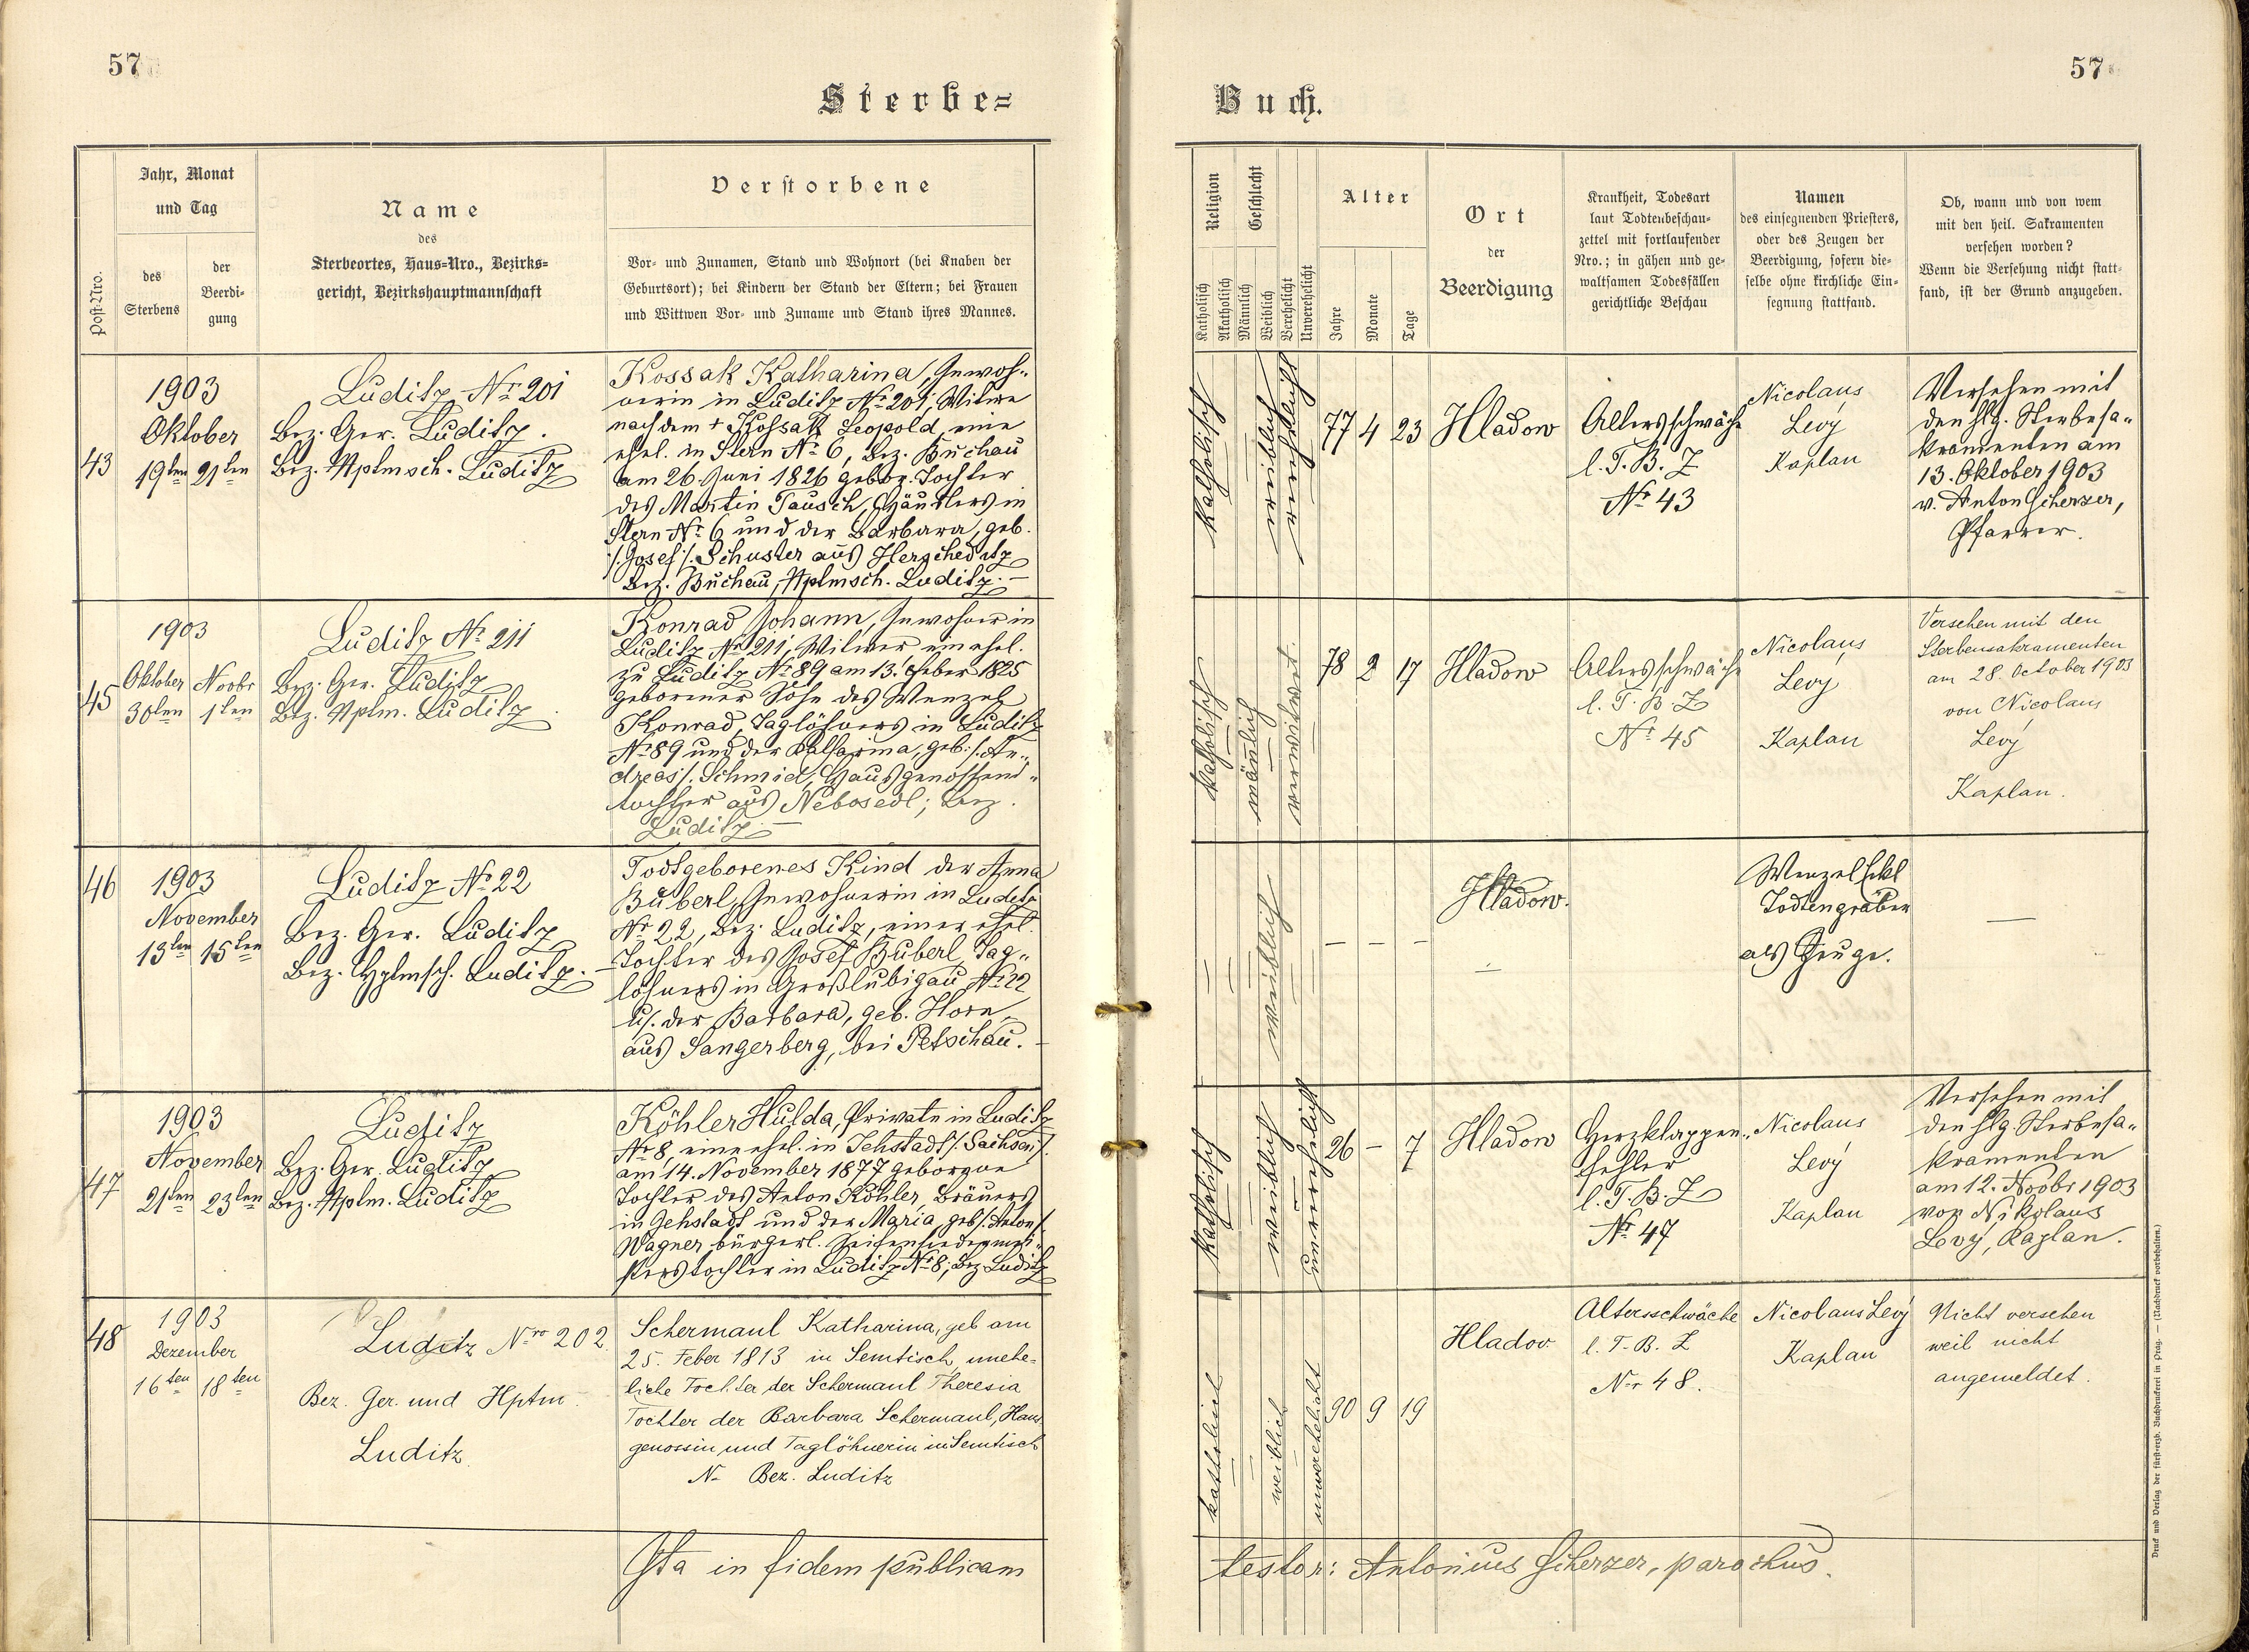 57
Sterbe=
Post-Nro.
Jahr, Monat
und Tag
des
Sterbens
der
Beerdi-
gung
Name
des
Sterbeortes, Haus-Nro., Bezirks=
gericht, Bezirkshauptmannschaft
Verstorbene
Vor- und Zunamen, Stand und Wohnort (bei Knaben der
Geburtsort); bei Kindern der Stand der Eltern; bei Frauen
und Wittwen Vor- und Zuname und Stand ihres Mannes.
43
1903
Oktober
19ten 21ten
Luditz No 201
Bez. Ger. Luditz.
Bez. Hptmsch. Luditz
Kossak Katharina, Inwoh-
nerin in Luditz No 201, Witwe
nach dem + Kossak Leopold, eine
ehel. in Stern No 6, Bez. Buchau
am 26. Juni 1826 gebor. Tochter
des Martin Tausch, Häuslers in
Stern No 6 und der Barbara, geb.
/: Josef :/ Schuster aus Herscheditz
Bez. Buchau, Hptmsch. Luditz. –
45
1903
Oktober Novbr
30ten 1ten
Luditz No 211
Bez. Ger. Luditz
Bez. Hptm. Luditz
Konrad Johann, Inwohner in
Luditz No 211, Witwer ein ehel.
zu Luditz No 89 am 13. Feber 1825
geborener Sohn des Wenzel
Konrad, Taglöhners in Luditz
No 89 und der Katharina, geb. /: An-
dreas :/ Schmid, Hausgenossens-
tochter aus Nebosedl; Bez.
Luditz. –
46
1903
November
13ten 15ten
Luditz No 22
Bez. Ger. Luditz
Bez. Hptmsch. Luditz. –
Todtgeborenes Kind der Anna
Büberl, Inwohnerin in Luditz
No 22, Bez. Luditz, einer ehel.
Tochter des Josef Büberl, Tag-
löhners in Großlubigau No 22
u. der Barbara, geb. Horn
aus Sangerberg, bei Petschau. –
47
1903
November
21ten 23ten
Luditz
Bez. Ger. Luditz
Bez. Hptm. Luditz
Köhler Hulda, Private in Luditz
No 8, eine ehel. in Jehstadt /: Sachsen :/
am 14. November 1877 geborene
Tochter des Anton Köhler, Bräuers
in Jehstadt und der Maria, geb. /: Anton :/
Wagner, bürgerl. Seifensiedermei-
sterstochter in Luditz No 8, Bez. Luditz
48
1903
Dezember
16ten 18ten
Luditz Nro 202.
Bez. Ger. und Hptm.
Luditz.
Schermaul Katharina, geb am
25. Feber 1813 in Semtisch, unehe-
liche Tochter der Schermaul Theresia
Tochter der Barbara Schermaul, Haus
genossin und Taglöhnerin in Semtisch
N– Bez. Luditz
Ita in fidem publicam
57
Buch.
Religion
Katholisch
Akatholisch
Geschlecht
Männlich
Weiblich
Verehelicht
Unverehelicht
Alter
Jahre
Monate
Tage
Ort
der
Beerdigung
Krankheit, Todesart
laut Todtenbeschau-
zettel mit fortlaufender
Nro.; in gähen und ge-
waltsamen Todesfällen
gerichtliche Beschau
Namen
des einsegnenden Priesters,
oder des Zeugen der
Beerdigung, sofern die-
selbe ohne kirchliche Ein-
segnung stattfand.
Ob, wann und von wem
mit den heil. Sakramenten
versehen worden?
Wenn die Versehung nicht statt-
fand, ist der Grund anzugeben.
katholisch
weiblich
verehelicht
77 4 23
Hladow
Altersschwäche
l. T. B. Z
No 43
Nicolaus
Levý
Kaplan
Versehen mit
den hlg. Sterbesa-
kramenten am
13. Oktober 1903
v. Anton Scherzer,
Pfarrer.
katholisch
mänlich
verwitwet
78 2 17
Hladow
Altersschwäche
l. T. B Z
No 45
Nicolaus
Levý
Kaplan
Versehen mit den
Sterbensakramenten
am 28. October 1903
von Nicolaus
Levý
Kaplan.
weiblich
– – –
Hladow.
–
Wenzel Eckl
Todtengräber
als Zeuge.
—
katholisch
weiblich
unverehelicht
26 – 7
Hladow
Herzklappen-
fehler
l. T. B. Z
No 47
Nicolaus
Levý
Kaplan
Versehen mit
den hlg. Sterbesa-
kramenten
am 12. Novbr 1903
von Nikolaus
Levý, Kaplan.
katholisch
weiblich
unverehelicht
90 9 19
Hladov
Altersschwäche
l. T. B. Z
Nr 48.
Nicolaus Levý
Kaplan
Nicht versehen
weil nicht
angemeldet.
testor: Antonius Scherzer, parochus.
Druck und Verlag der fürst-erzb. Buchdruckerei in Prag. — (Nachdruck vorbehalten.)